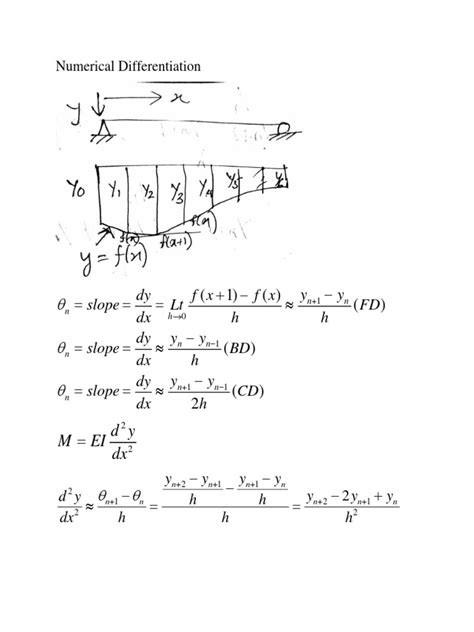 Numerical Differentiation
y x
Y₀ Y₁ Y₂ Y₃ Y₄ Y₅
f(x) f(x+1) f(x)
y = f(x)
θₙ = slope = dy/dx = Lt h→0 (f(x+1) − f(x))/h ≈ (yₙ₊₁ − yₙ)/h (FD)
θₙ = slope = dy/dx ≈ (yₙ − yₙ₋₁)/h (BD)
θₙ = slope = dy/dx ≈ (yₙ₊₁ − yₙ₋₁)/2h (CD)
M = EI d²y/dx²
d²y/dx² ≈ (θₙ₊₁ − θₙ)/h = ((yₙ₊₂ − yₙ₊₁)/h − (yₙ₊₁ − yₙ)/h)/h = (yₙ₊₂ − 2yₙ₊₁ + yₙ)/h²